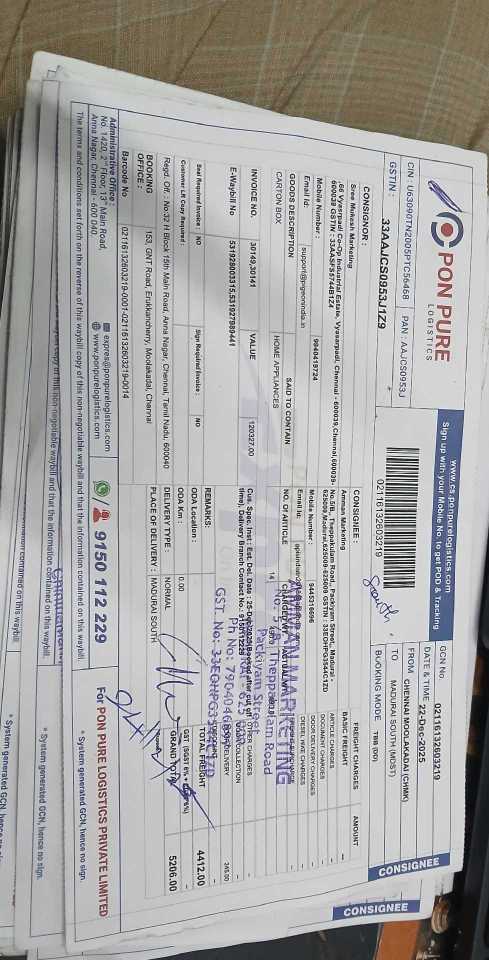 PON PURE
LOGISTICS
CIN : U63090TN2005PTC56468 PAN : AAJCS0953J
GSTIN : 33AAJCS0953J1Z9
www.cs.ponpurelogistics.com
Sign up with your Mobile No. to get POD & Tracking
02116132603219
GCN No 02116132603219
DATE & TIME 22-Dec-2025
FROM CHENNAI MOOLAKADAI (CHMK)
TO MADURAI SOUTH (MDST)
BOOKING MODE TBB (DD)
CONSIGNEE
CONSIGNOR :
Sree Mukesh Marketing
,66 Vyasrpadi Co-Op Industrial Estate, Vyasarpadi, Chennai - 600039,Chennai,600039-
600039 GSTIN : 33AASFS5744B1Z4
Mobile Number : 9940419724
Email Id: support@pigeonindia.in
CONSIGNEE :
Amman Marketing
No.5/B, Theppakulam Road, Packiyam Street, Madurai -
625009,Madurai,625009-625009 GSTIN : 33EOHPG3554C1ZD
Mobile Number : 9445316696
Email Id:
GOODS DESCRIPTION SAID TO CONTAIN NO. OF ARTICLE
CARTON BOX HOME APPLIANCES 14
INVOICE NO. 30149,30141 VALUE 120327.00
E-Waybill No 531928003315,531927989441
Cus. Spec. Inst : Est. Del. Date : 25-Dec-2025
time), Delivery Branch Contact No.
Seal Required Invoice : NO Sign Required Invoice : NO
Customer LR Copy Required :
REMARKS:
ODA Location :
ODA Km : 0.00
DELIVERY TYPE : NORMAL
PLACE OF DELIVERY : MADURAI SOUTH
Regd. Off. : No:32 H Block 15th Main Road, Anna Nagar, Chennai, Tamil Nadu, 600040
BOOKING
OFFICE : 153, GNT Road, Erukkancherry, Moolakadai, Chennai
Barcode No 02116132603219-0001-02116132603219-0014
FREIGHT CHARGES AMOUNT
BASIC FREIGHT
ARTICLE CHARGES
DOCUMENT CHARGES
DOOR DELIVERY CHARGES
DIESEL HIKE CHARGES
OTHER CHARGES
245.00
TOTAL FREIGHT 4412.00
GRAND TOTAL 5206.00
AMMAN MARKETING
No. 5/B, Theppakulam Road
Packiyam Street
GST No: 33EOHPG3554C1ZD
Administrative Office :
No. 1420, 2nd Floor, 13th Main Road,
Anna Nagar, Chennai - 600 040
expres@ponpurelogistics.com
www.ponpurelogistics.com
9150 112 229
For PON PURE LOGISTICS PRIVATE LIMITED
The terms and conditions set forth on the reverse of this waybill copy of this non-negotiable waybill and that the information contained on this waybill.
* System generated GCN, hence no sign.
copy of this non-negotiable waybill and that the information contained on this waybill.
* System generated GCN, hence no sign.
CONSIGNEE
* System generated GCN, hence no